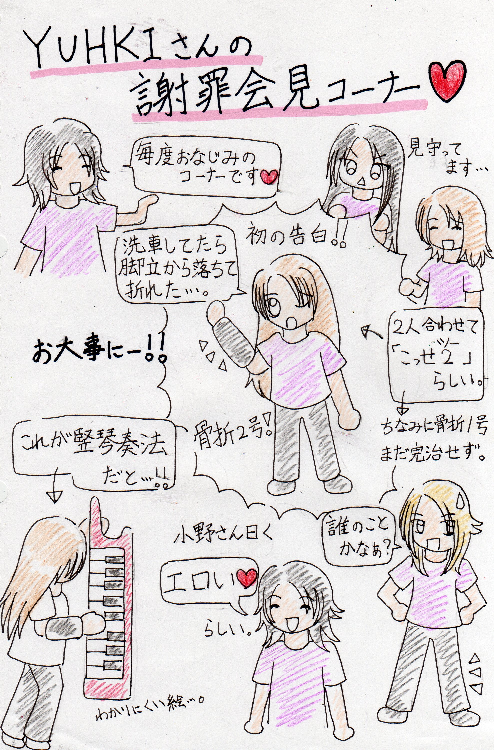 YUHKIさんの
謝罪会見コーナー♥
毎度おなじみの
コーナーです♥
見守って
ます…
初の告白!!
洗車してたら
脚立から落ちて
折れた…。
お大事にー!!
2人合わせて
「こっせ2」
ツー
らしい。
ちなみに骨折1号
まだ完治せず。
骨折2号!
これが竪琴奏法
だと…!!
小野さん曰く
エロい♥
らしい。
誰のこと
かなぁ?
わかりにくい絵…。